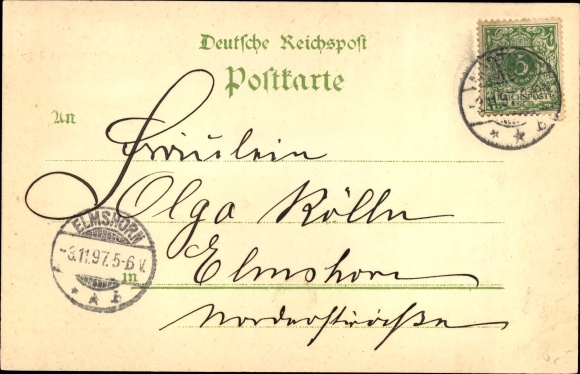 Deutsche Reichspost
Postkarte
5
REICHSPOST
An
Fräulein
Olga Kölln
ELMSHORN
-3.11.97.5-6 V.
* * b
in
Elmshorn
Norderstraße